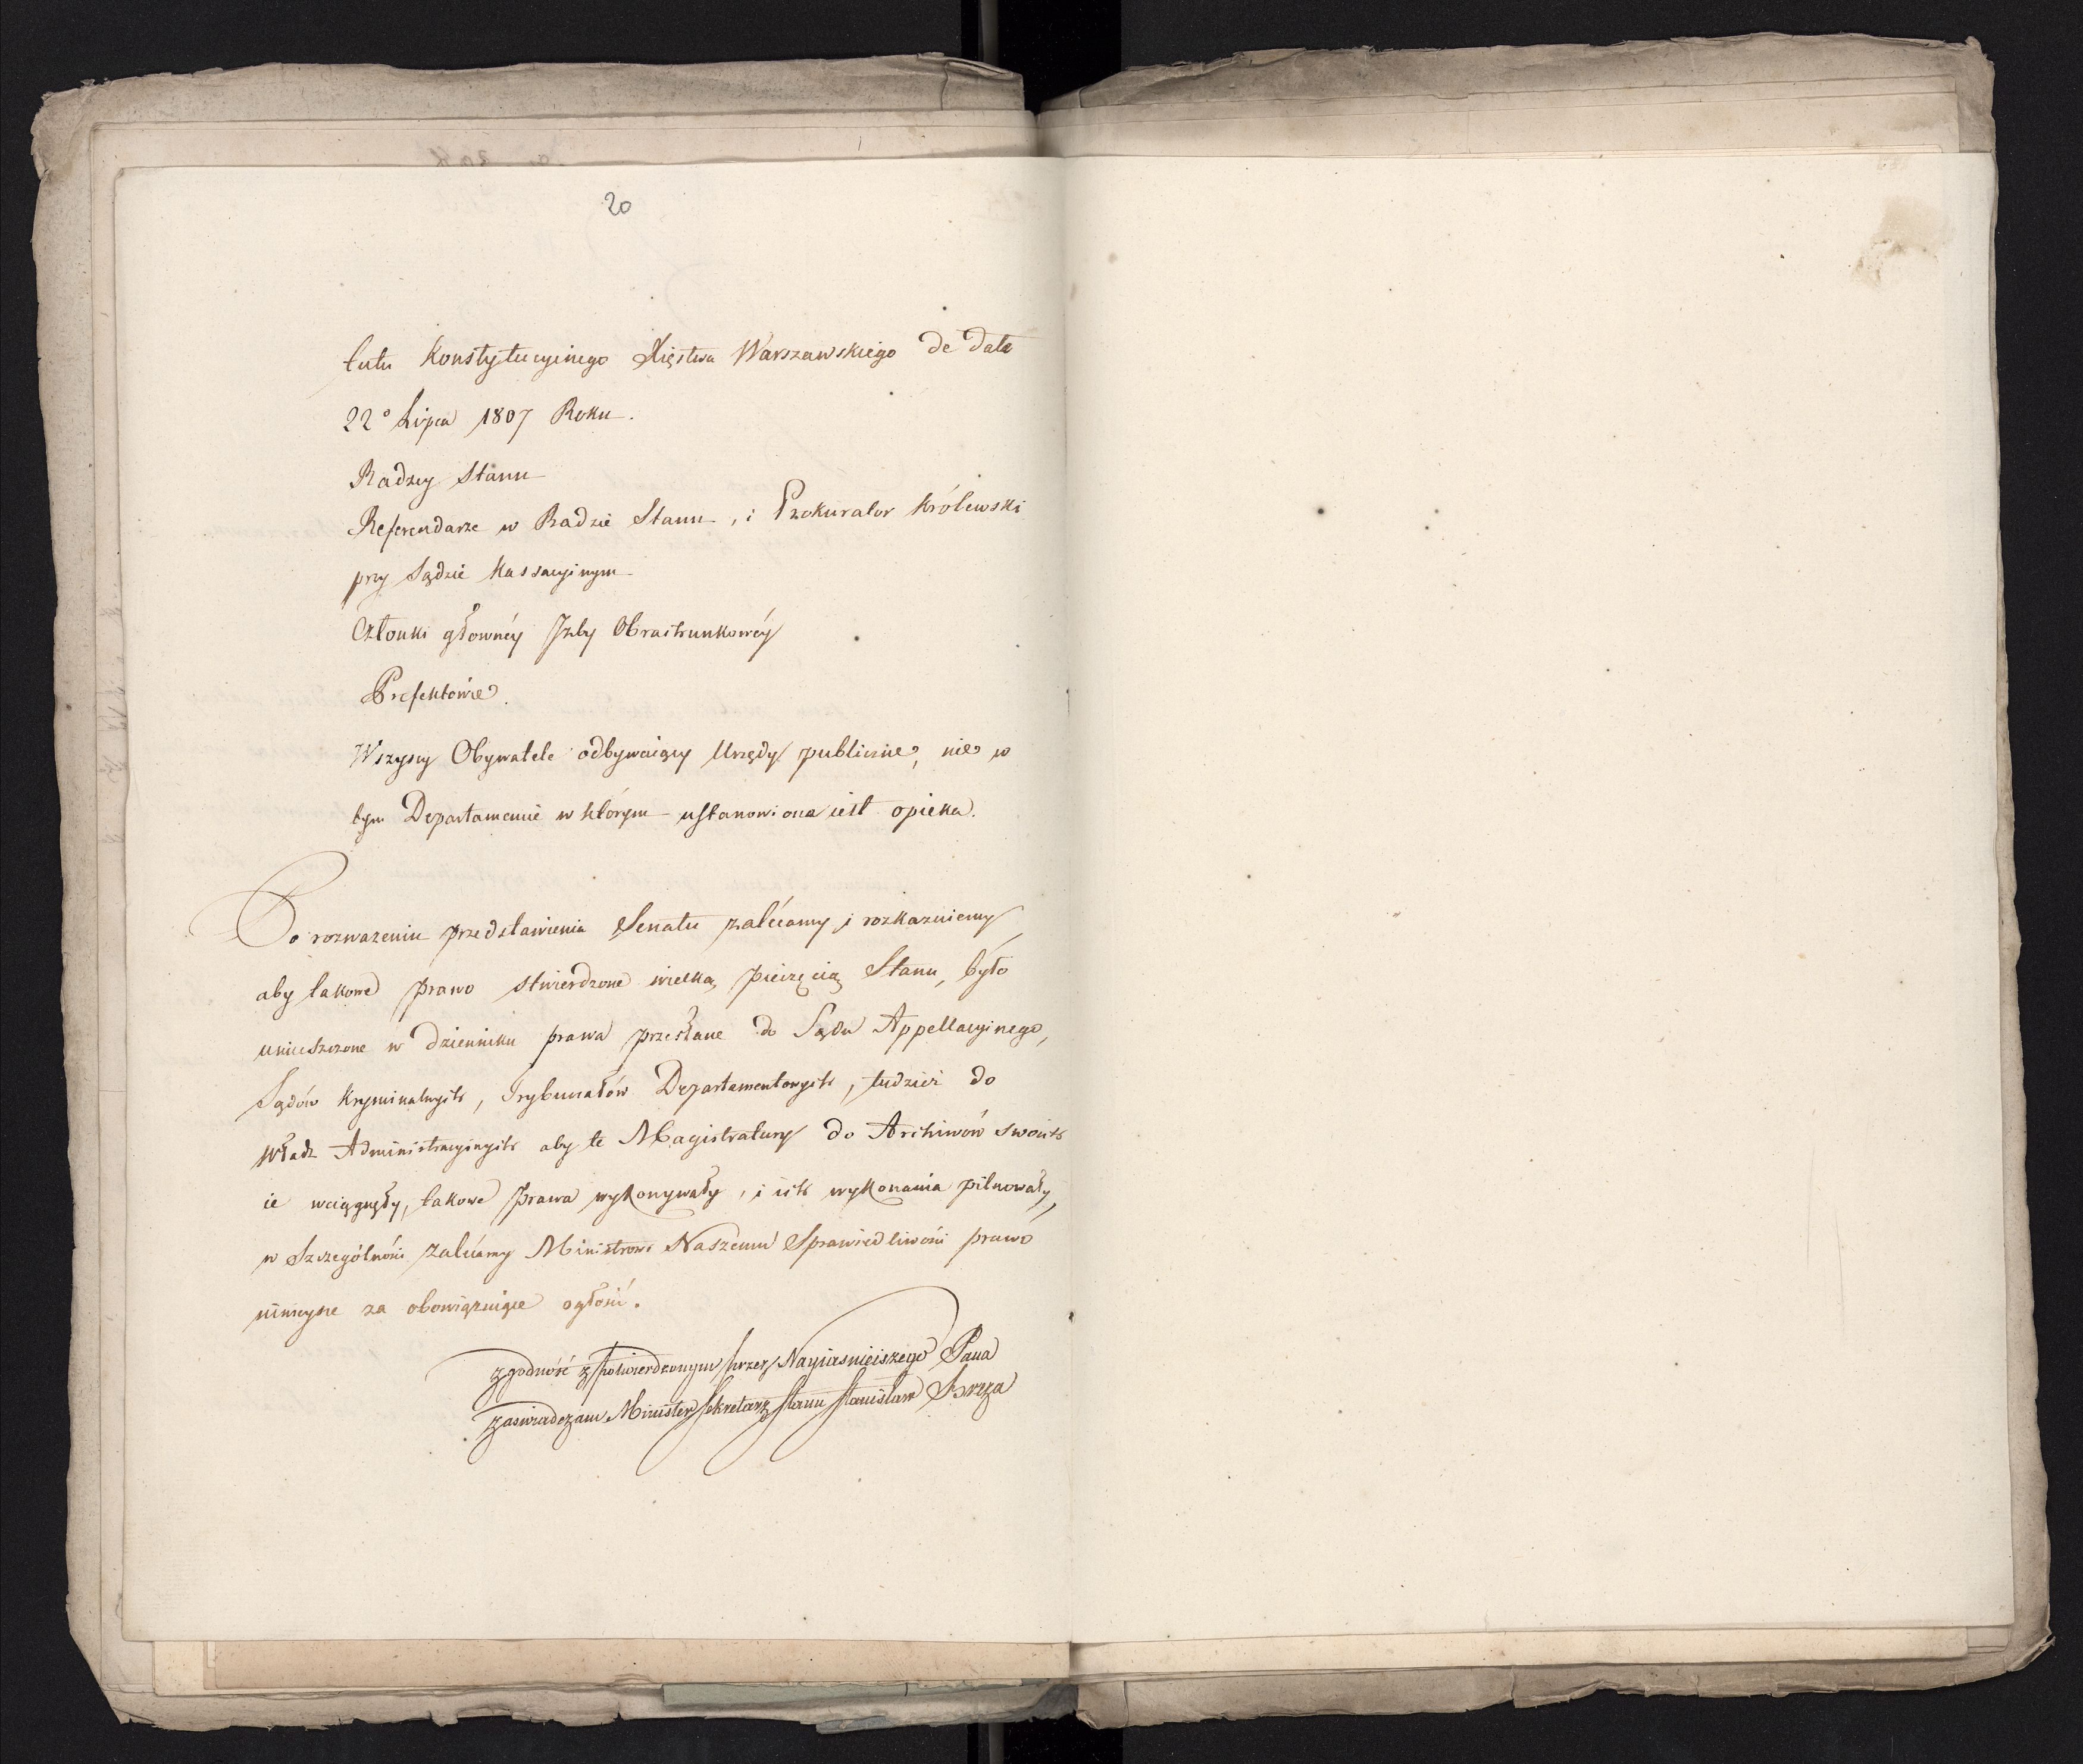 20
tutu Konstytucyinego Xięstwa Warszawskiego de dato
22º Lipca 1807 Roku.
Radzcy Stanu
Referendarze w Radzie Stanu, i Prokurator Królewski
przy Sądzie Kassacyinym
Członki głowney Izby Obrachunkowéy
Prefektowie.
Wszyscy Obywatele odbywaiący Urzędy publiczne, nie w
tym Departamencie w którym ustanowiona iest opieka.
Po rozwazeniu przedstawienia Senatu zalécamy i rozkazuiemy
aby takowe prawo stwierdzone wielką pieczęcią Stanu, było
umieszczone w dzienniku prawa przesłane do Sądu Appellacyinego,
Sądów Kryminalnych, Trybunałów Departamentowych, tudzież do
Władz Administracyinych aby te Magistratury do Archiwów swoich
ie wciągnęły, takowe prawa wykonywały, i ich wykonania pilnowały,
w Szczególności zalécamy Ministrowi Naszemu Sprawiedliwości prawo
ninieysze za obowiązuiące ogłosić.
zgodność z potwierdzonym przez Nayiasnieiszego Pana
zaswiadczam Minister Sekretarz Stanu Stanisław Breza